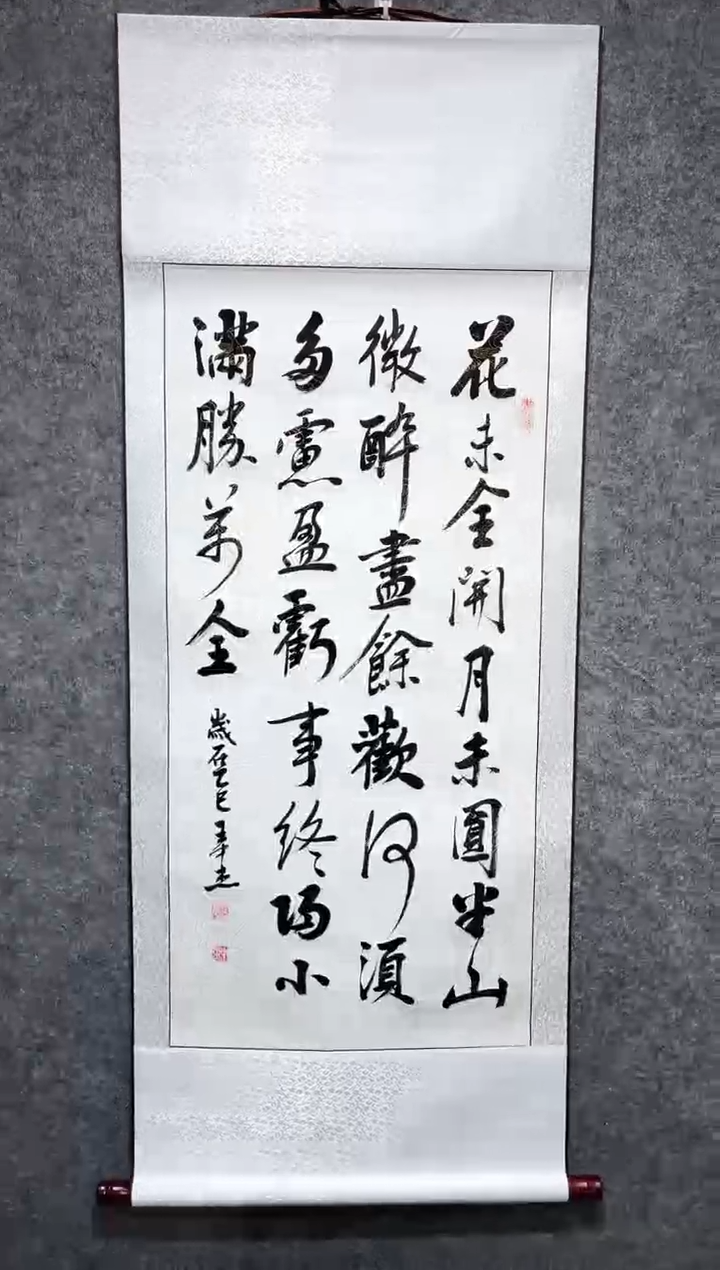 花未全開月未圓半山
微醉盡餘歡何須
多慮盈虧事終歸小
滿勝萬全
歲在乙巳